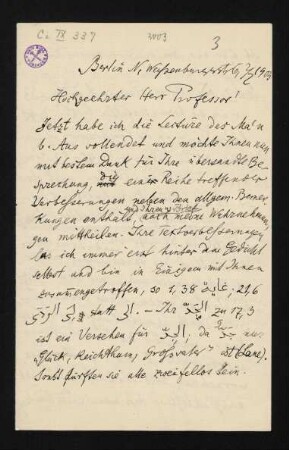 C. IX 337
3003
3
Berlin N,
Hochgeehrter Herr Professor!
Jetzt habe ich die Lecture des Ma'n
b. Aus vollendet und möchte Ihnen nun
mit bestem Dank für Ihre übersandte Be-
sprechung, die eine Reihe treffender
Verbesserungen neben den allgem. Bemer-
kungen enthält, auch meine Wahrnehmun-
gen mittheilen. Ihre Textverbesserungen
las ich immer erst hinter dem Gedicht
selbst und bin in Einigem mit Ihnen
zusammengetroffen, so 1,38 غاية; 21,6
statt – Ihr zu 17,3
ist ein Versehen für da nur
"Glück, Reichthum, Großvater" ist (Lane).
Sonst dürften sie alle zweifellos sein.